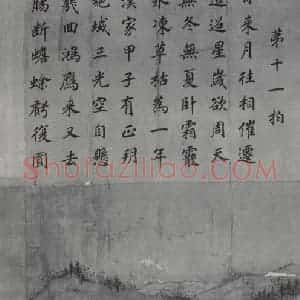 第十一拍
日來月往相催遷
迢迢星歲欲周天
無冬無夏臥霜霰
水凍草枯為一年
漢家甲子有正朔
絕域三光空自懸
幾回鴻鴈來又去
腸斷蟾蜍虧復圓
Shufaziliao.com